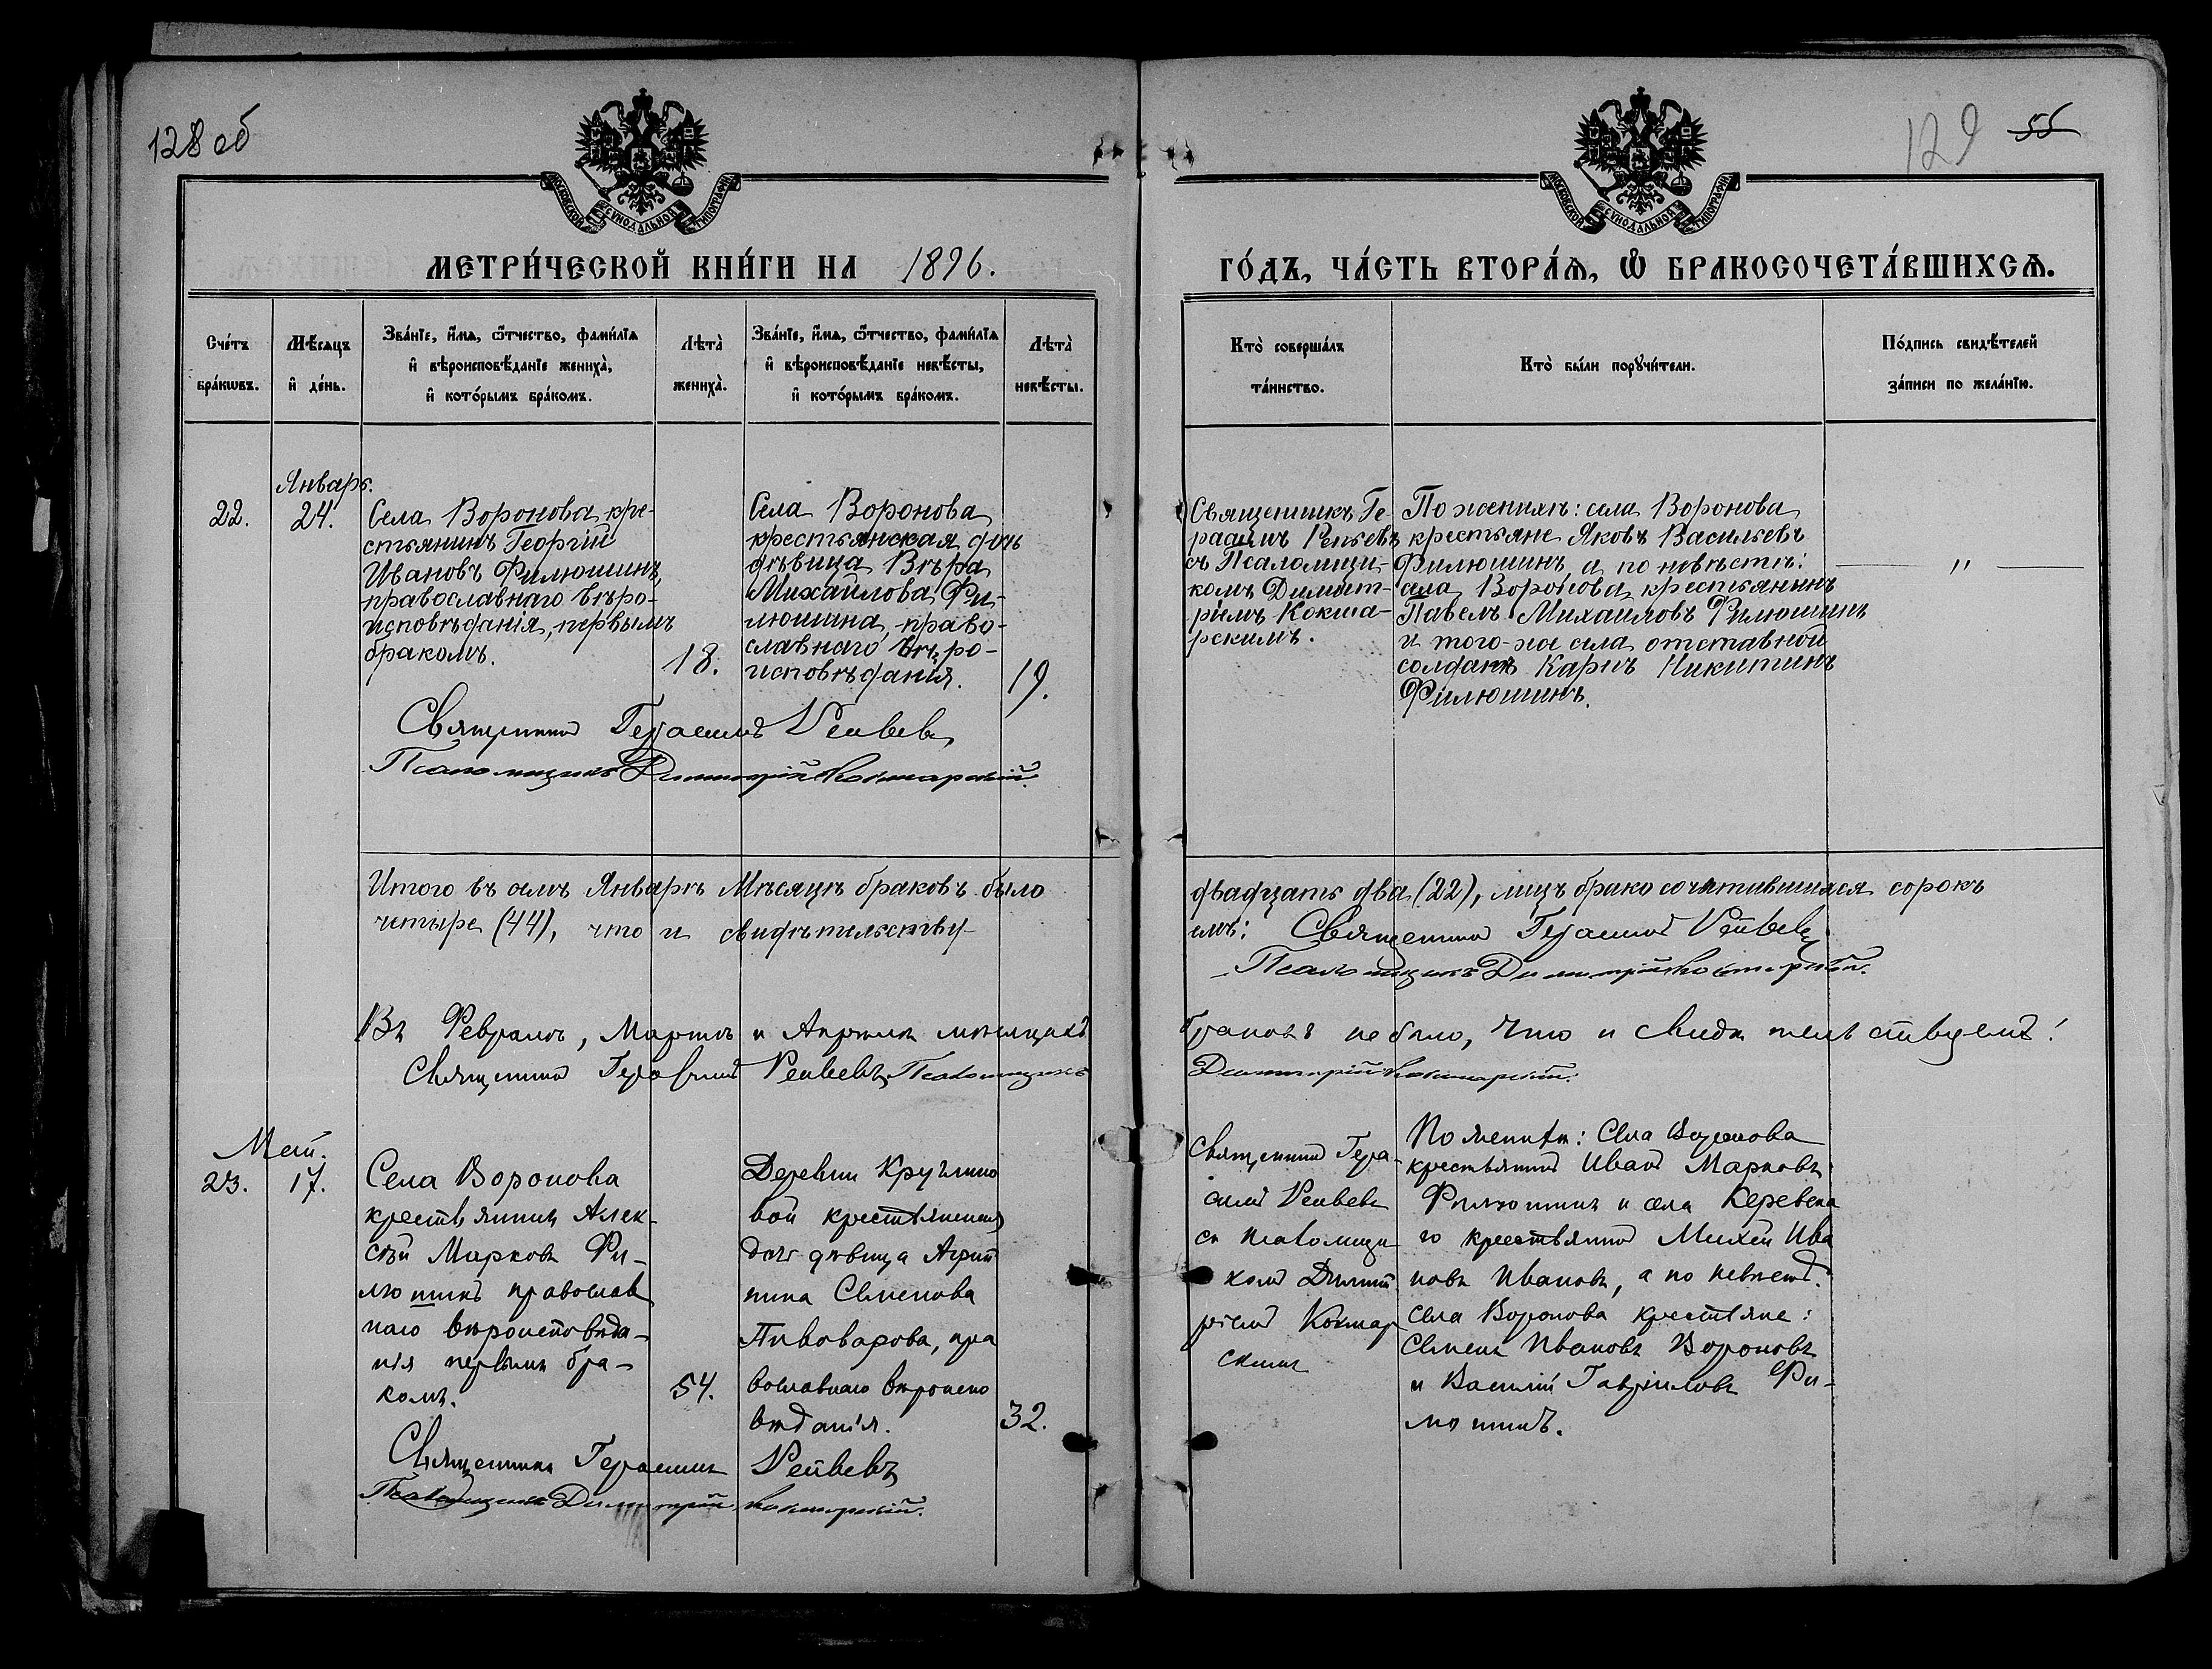 128 об
129 55
МОСКОВСКОЙ СѴНОДАЛЬНОЙ ТИПОГРАФІИ
МОСКОВСКОЙ СѴНОДАЛЬНОЙ ТИПОГРАФІИ
МЕТРИ́ЧЕСКОЙ КНИ́ГИ НА 1896.
ГО́ДЪ, ЧА́СТЬ ВТОРА́Ѧ, Ѽ БРАКОСОЧЕТА́ВШИХСѦ.
Сче́тъ
бра́кѡвъ.
Мѣ́сяцъ
и҆ де́нь.
Зва́нїе, и҆́мѧ, ѻ҆́тчество, фами́лїѧ
и҆ вѣроисповѣ́данїе жениха̀,
и҆ кото́рымъ бра́комъ.
Лѣта̀
жениха̀.
Зва́нїе, и҆́мѧ, ѻ҆́тчество, фами́лїѧ
и҆ вѣроисповѣ́данїе невѣ́сты,
и҆ кото́рымъ бра́комъ.
Лѣта̀
невѣ́сты.
Кто̀ соверша́лъ
та́инство.
Кто̀ бы́ли порꙋчи́тели.
По́дпись свидѣ́телей
за́писи по жела́нїю.
22.
Январь.
24.
Села Воронова кре-
стьянинъ Георгій
Ивановъ Филюшинъ,
православнаго вѣро-
исповѣданія, первымъ
бракомъ.
18.
Села Воронова
крестьянская дочь
дѣвица Вѣра
Михайлова Фи-
люшина, право-
славнаго вѣро-
исповѣданія.
19.
Священникъ Ге-
расимъ Репьевъ
съ Псаломщи-
комъ Димит-
ріемъ Кокша-
рскимъ.
По женихѣ: села Воронова
крестьяне Яковъ Васильевъ
Филюшинъ, а по невѣстѣ:
села Воронова крестьянинъ
Павелъ Михаиловъ Филюшинъ
и того-же села отставной
солдатъ Карпъ Никитинъ
Филюшинъ.
— " —
Священникъ Герасимъ Репьевъ
Псаломщикъ Димитрій Кокшарскій.
Итого въ семъ Январѣ Мѣсяцѣ браковъ было
двадцать два (22), лицъ брако сочетавшихся сорокъ
четыре (44), что и свидѣтельству-
емъ: Священникъ Герасимъ Репьевъ
Псаломщикъ Димитрій Кокшарскій.
Въ Февралѣ, Мартѣ и Апрѣлѣ мѣсяцахъ
браковъ не было, что и свидѣтельствуемъ:
Священникъ Герасимъ Репьевъ Псаломщикъ
Димитрій Кокшарскій.
Май.
23. 17.
Села Воронова
крестьянинъ Алек-
сѣй Марковъ Фи-
люшинъ православ
наго вѣроисповѣда-
нія первымъ бра-
комъ.
54.
Деревни Круглико
вой крестьянская
дочь дѣвица Агрип
пина Семенова
Пивоварова, пра
вославнаго вѣроиспо
вѣданія.
32.
Священникъ Гера-
симъ Репьевъ
съ псаломщи
комъ Димит
ріемъ Кокшар
скимъ
По женихѣ: Села Воронова
крестьянинъ Иванъ Марковъ
Филюшинъ и села Керевска
го крестьянинъ Михей Ива
новъ Ивановъ, а по невѣстѣ:
села Воронова крестьяне:
Семенъ Ивановъ Вороновъ
и Василій Гавріиловъ Фи-
люшинъ.
Священникъ Герасимъ Репьевъ
Псаломщикъ Димитрій Кокшарскій.